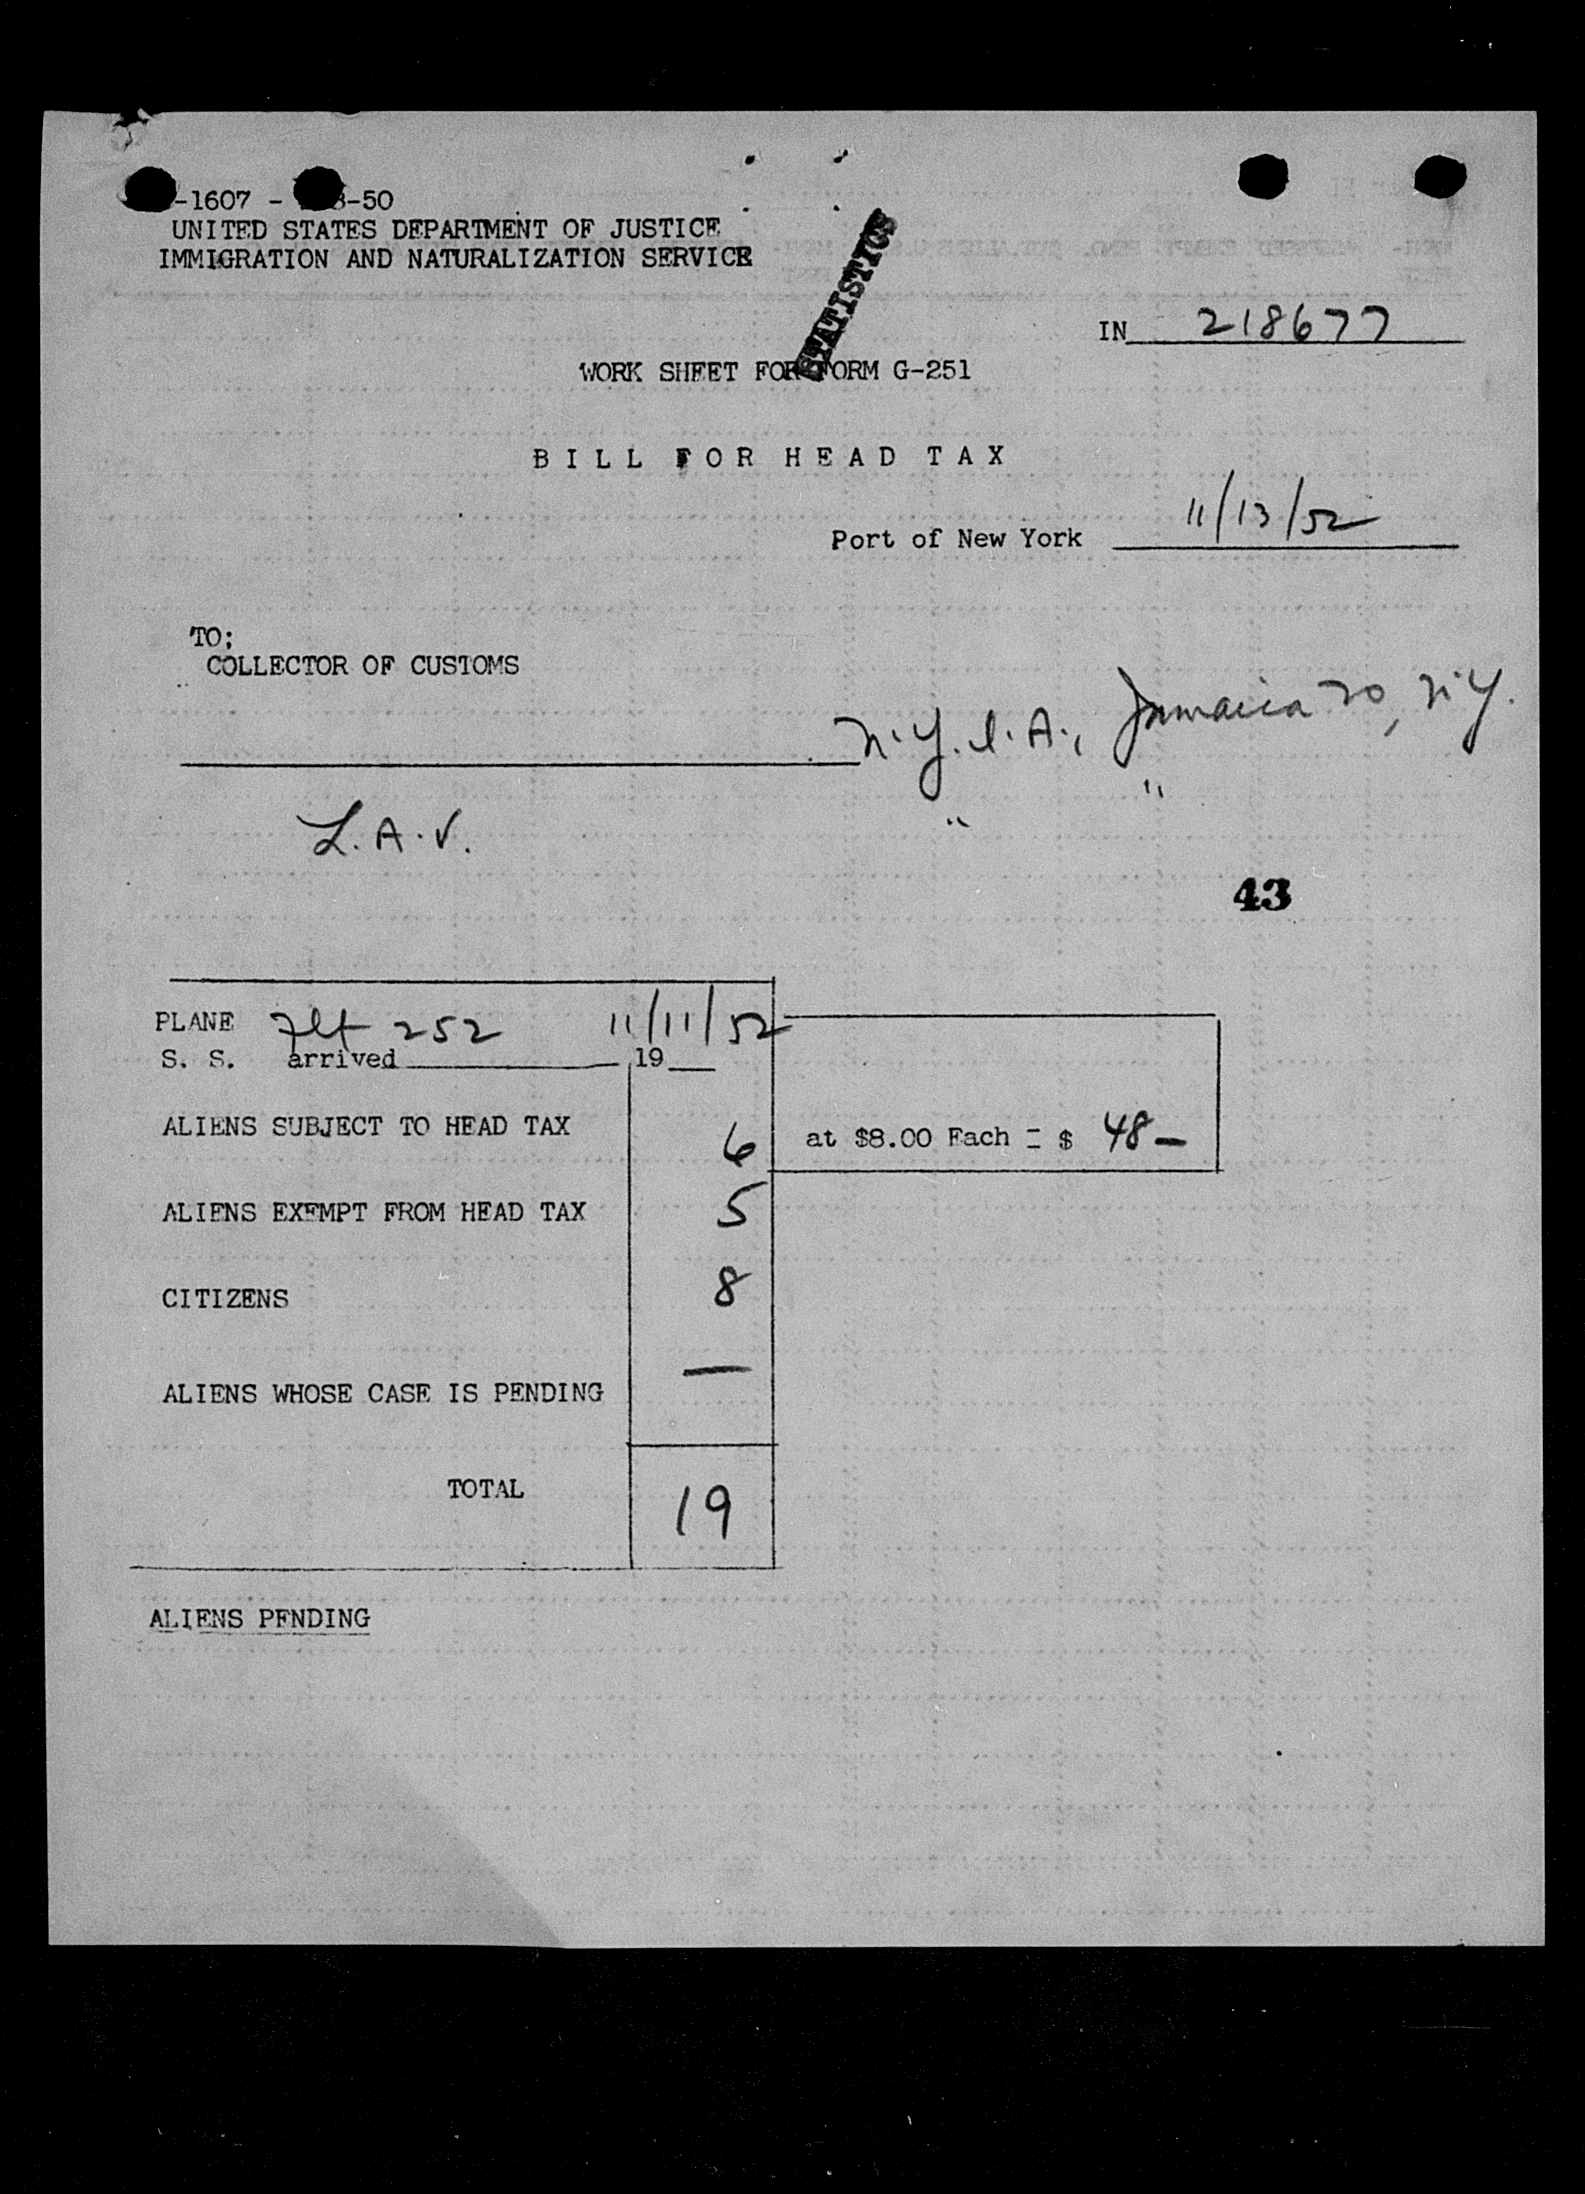 -1607 - -50
UNITED STATES DEPARTMENT OF JUSTICE
IMMIGRATION AND NATURALIZATION SERVICE
STATISTICS
IN 218677
WORK SHEET FOR FORM G-251
BILL FOR HEAD TAX
Port of New York 11/13/52
TO;
COLLECTOR OF CUSTOMS
N.Y.I.A., Jamaica 30, N.Y.
" "
L.A.V.
43
PLANE Flt 252 11/11/52
S. S. arrived , 19
ALIENS SUBJECT TO HEAD TAX 6 at $8.00 Each = $ 48—
ALIENS EXEMPT FROM HEAD TAX 5
CITIZENS 8
ALIENS WHOSE CASE IS PENDING —
TOTAL 19
ALIENS PENDING